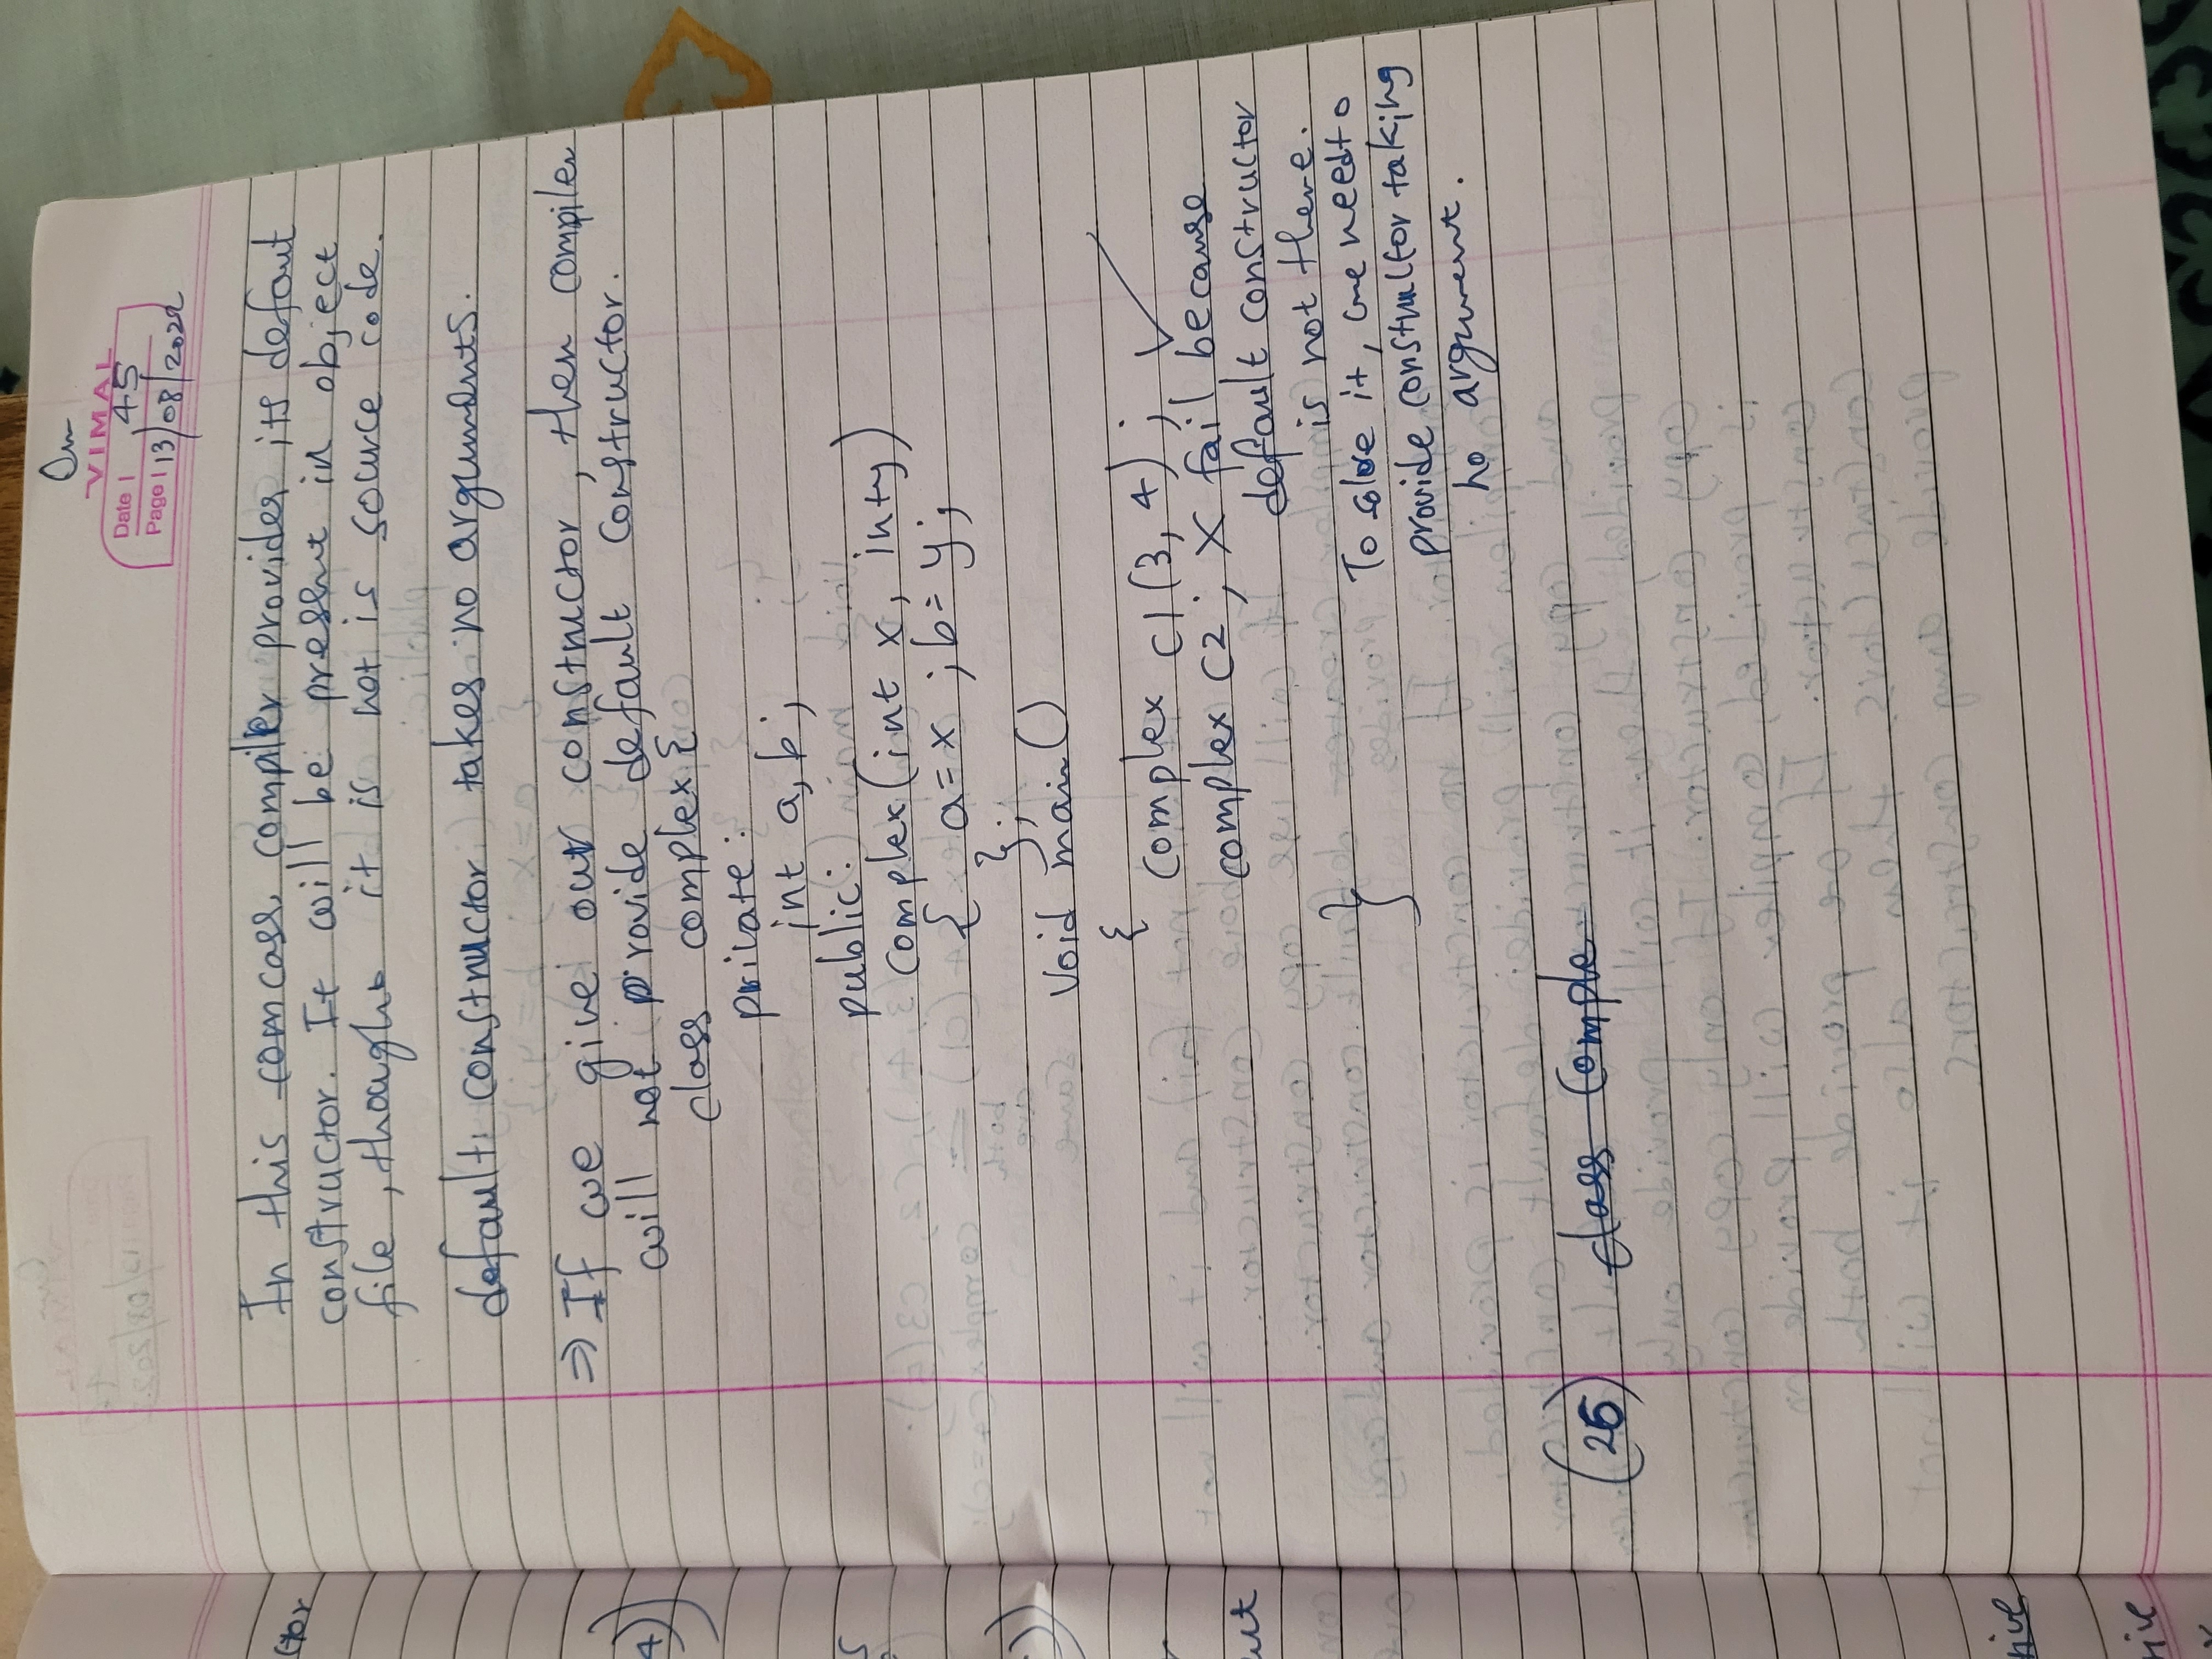 Om
VIMAL
Date 45
Page 13/08/2022
In this comcase, compiler provides its defaut
constructor. It will be present in object
file, though it is not is source code.
default constructor takes no arguments.
⇒ If we give our constructor, then compiler
will not provide default constructor.
class complex {
private:
int a, b;
public:
complex (int x, int y)
{ a=x ; b=y;
};
void main()
{
complex c1(3, 4); ✓
complex c2; X fail because
default constructor
is not there.
} To solve it, one need to
provide constructor taking
no argument.
(26) class Comple
ctor
4))
s
ut
rive
rive